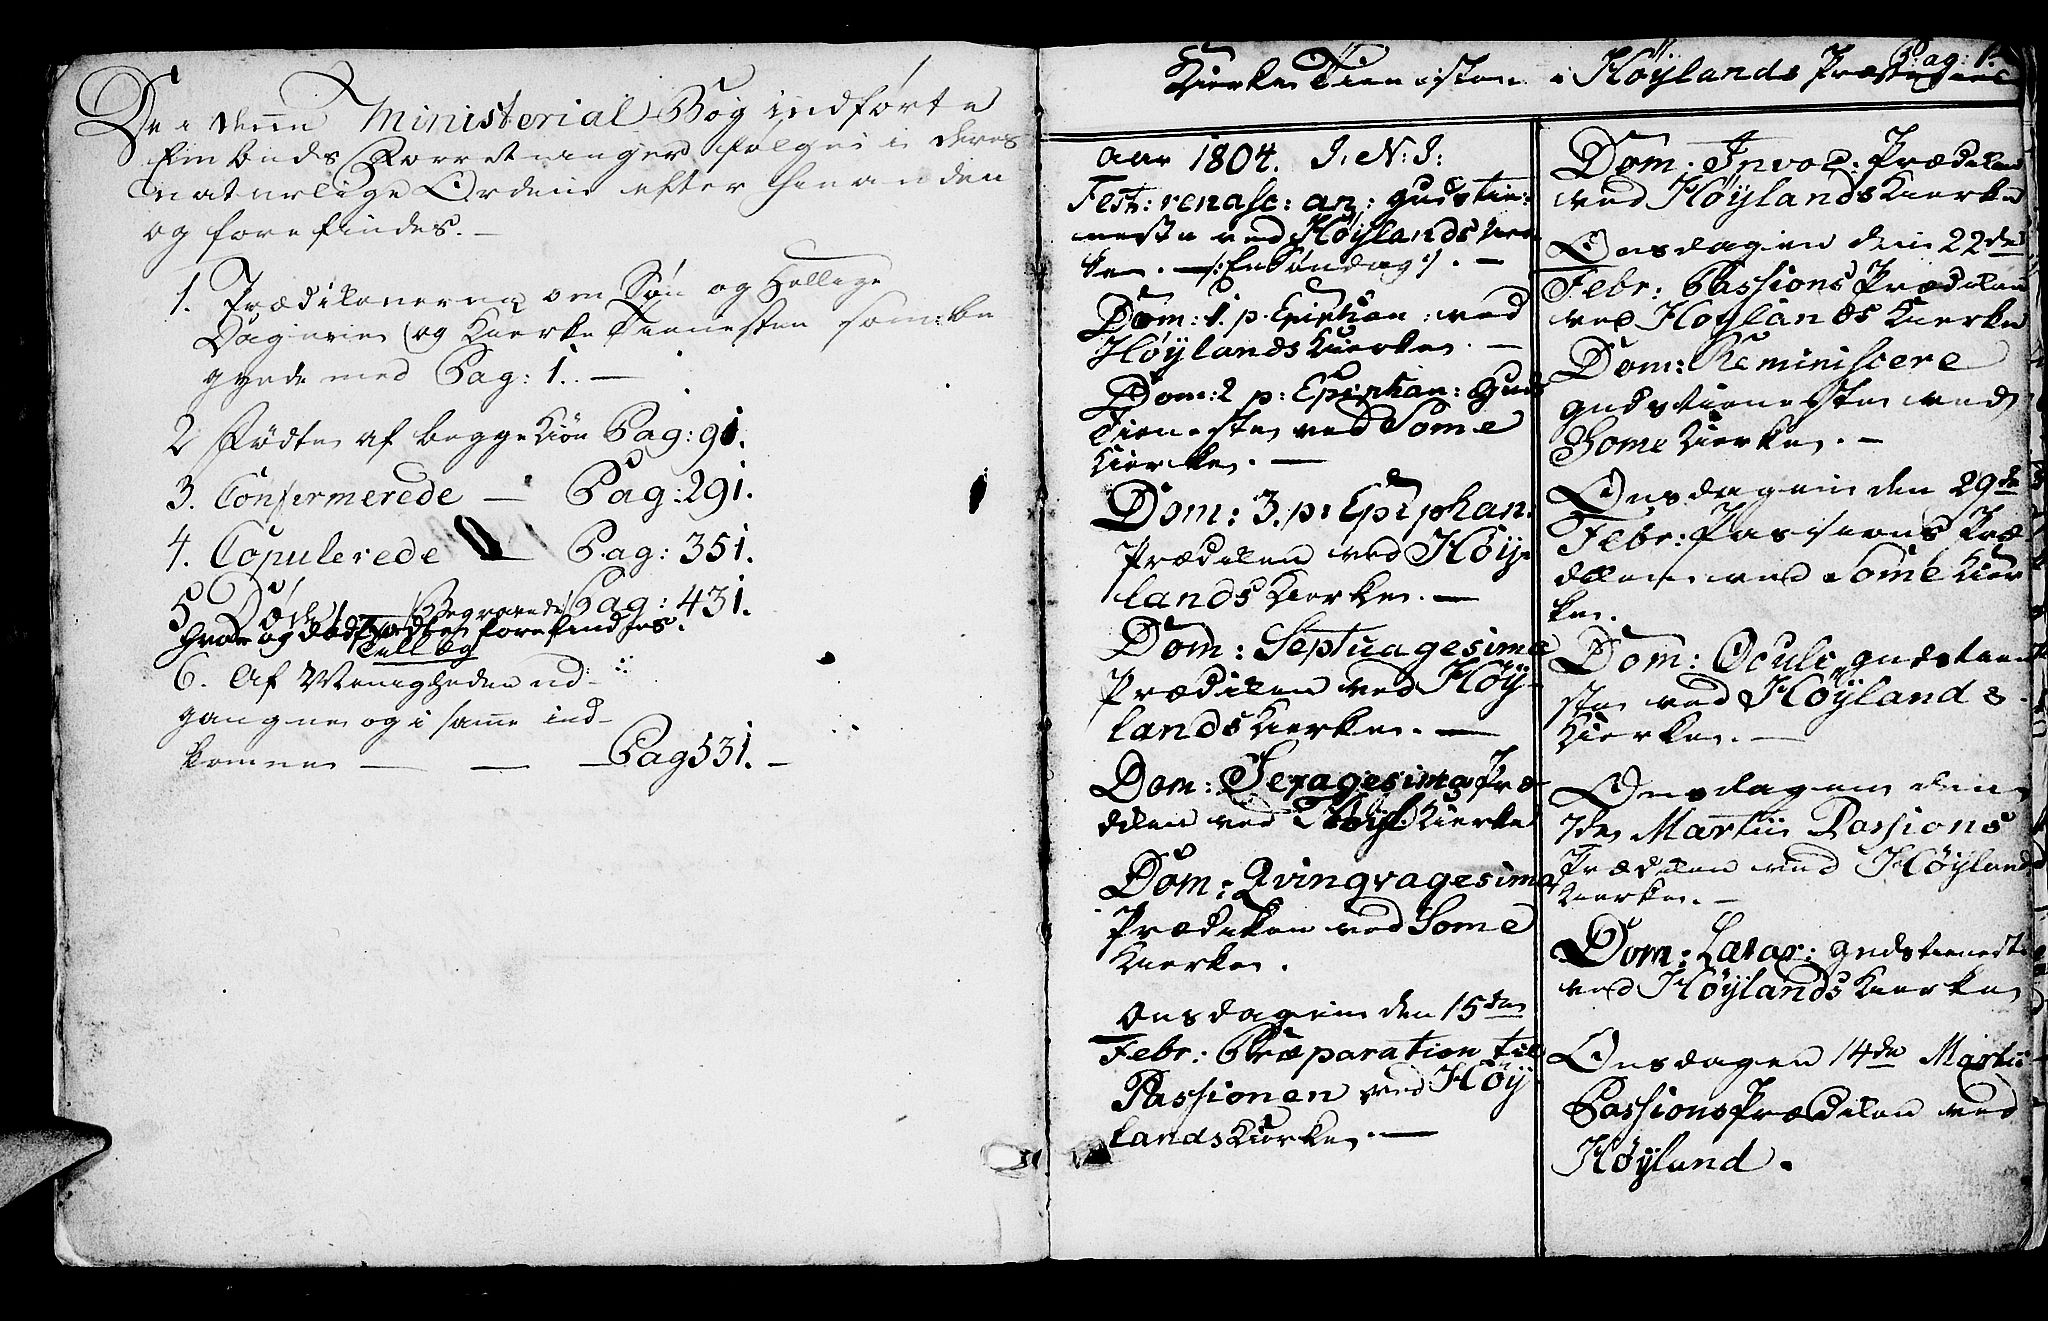 De i denne Ministerial Bog indførte
Embeds Forretninger følges i deres
naturlige Orden efter hinanden
og forefindes. —
1. Prædikenerne om Søn og Hellige
Dagene og Kierke Tienesten som be
gynde med Pag: 1. —
2 Fødte af begge Kiøn Pag: 91.
3. Confirmerede — Pag: 291.
4. Copulerede — Pag: 351.
5 Døde / Begravede / Pag: 431.
hvor og dødfødte forefindes.
6. Af Menigheden ud-
gangne og i samme ind-
komne — — — Pag 531. —
Pag: 1.
Kierke Tienesten i Høylands
aar 1804. I: N: I:
Fest: renasc: an: gudstie:
neste ved Høylands Kier
ken. — /: en Søndag :/. —
Dom: 1. p. Epiphan: ved
Høylands Kierke. —
Dom: 2 p: Epiphan: Guds
Tieneste ved Some
Kierke. —
Dom: 3. p: Epiphan.
Prædiken ved Høy-
lands Kierke. —
Dom: Septuagesima
Prædiken ved Høy-
lands Kierke. —
Dom: Sexagesima Præ-
diken ved Høyl: Kierke
Dom: Qvinqvagesima
Prædiken ved Some
Kierke.
Onsdagen den 15de
Febr: Præparation til
Passionen ved Høy
lands Kierke. —
Dom: Invoc: Prædiken
ved Høylands Kierke
Onsdagen den 22de
Febr: Passions Prædiken
ved Høylands Kierke
Dom: Reminiscere
gudstieneste ved
Some Kierke. —
Onsdagen den 29de
Febr: Passions Præ
diken ved Some Kier
ke.
Dom: Oculi gudstiene
ste ved Høylands
Kierke. —
Onsdagen den
7de Martii Passions
Prædiken ved Høylands
Kierke. —
Dom: Lætar: gudstieneste
ved Høylands Kierke
Onsdagen 14de Martii
Passions Prædiken ved
Høyland.